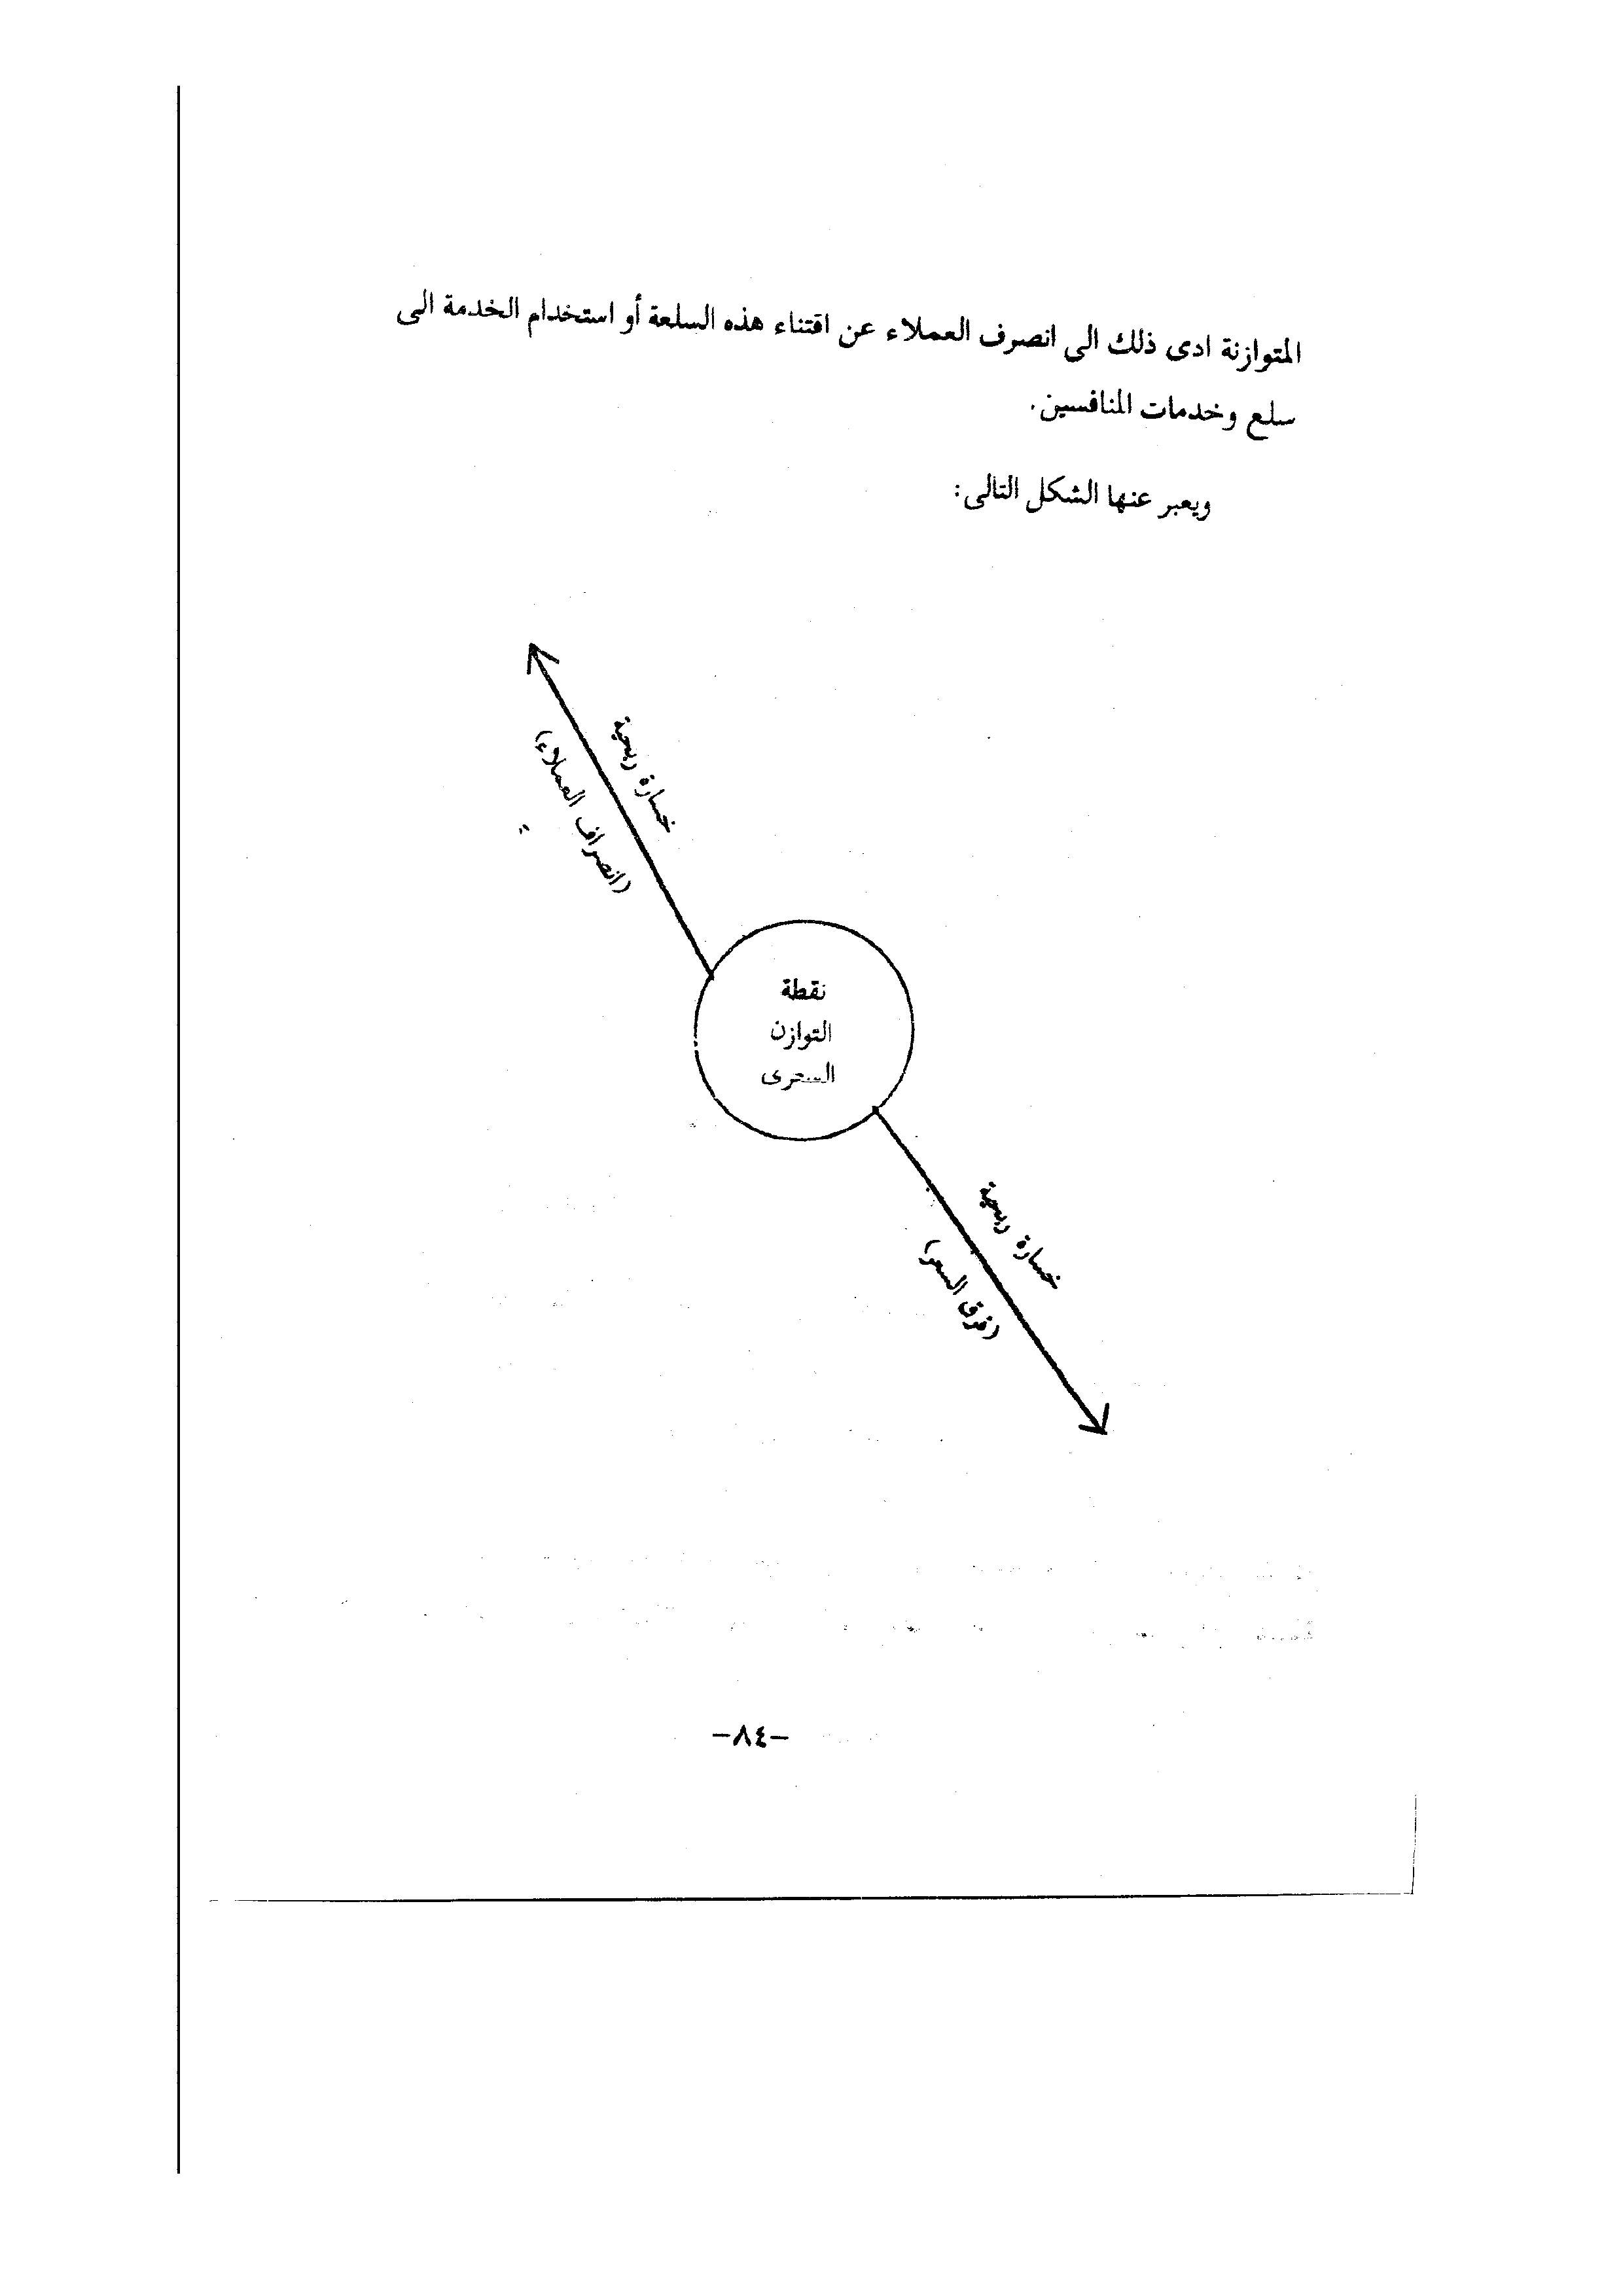 المتوازنة ادى ذلك الى انصرف العملاء عن اقتناء هذه السلعة أو استخدام الخدمة الى
سلع وخدمات المنافسين.
ويعبر عنها الشكل التالى:
خسارة ربحية
(انصراف العملاء)
نقطة
التوازن
السعرى
خسارة ربحية
(فوق السعر)
-٨٤-